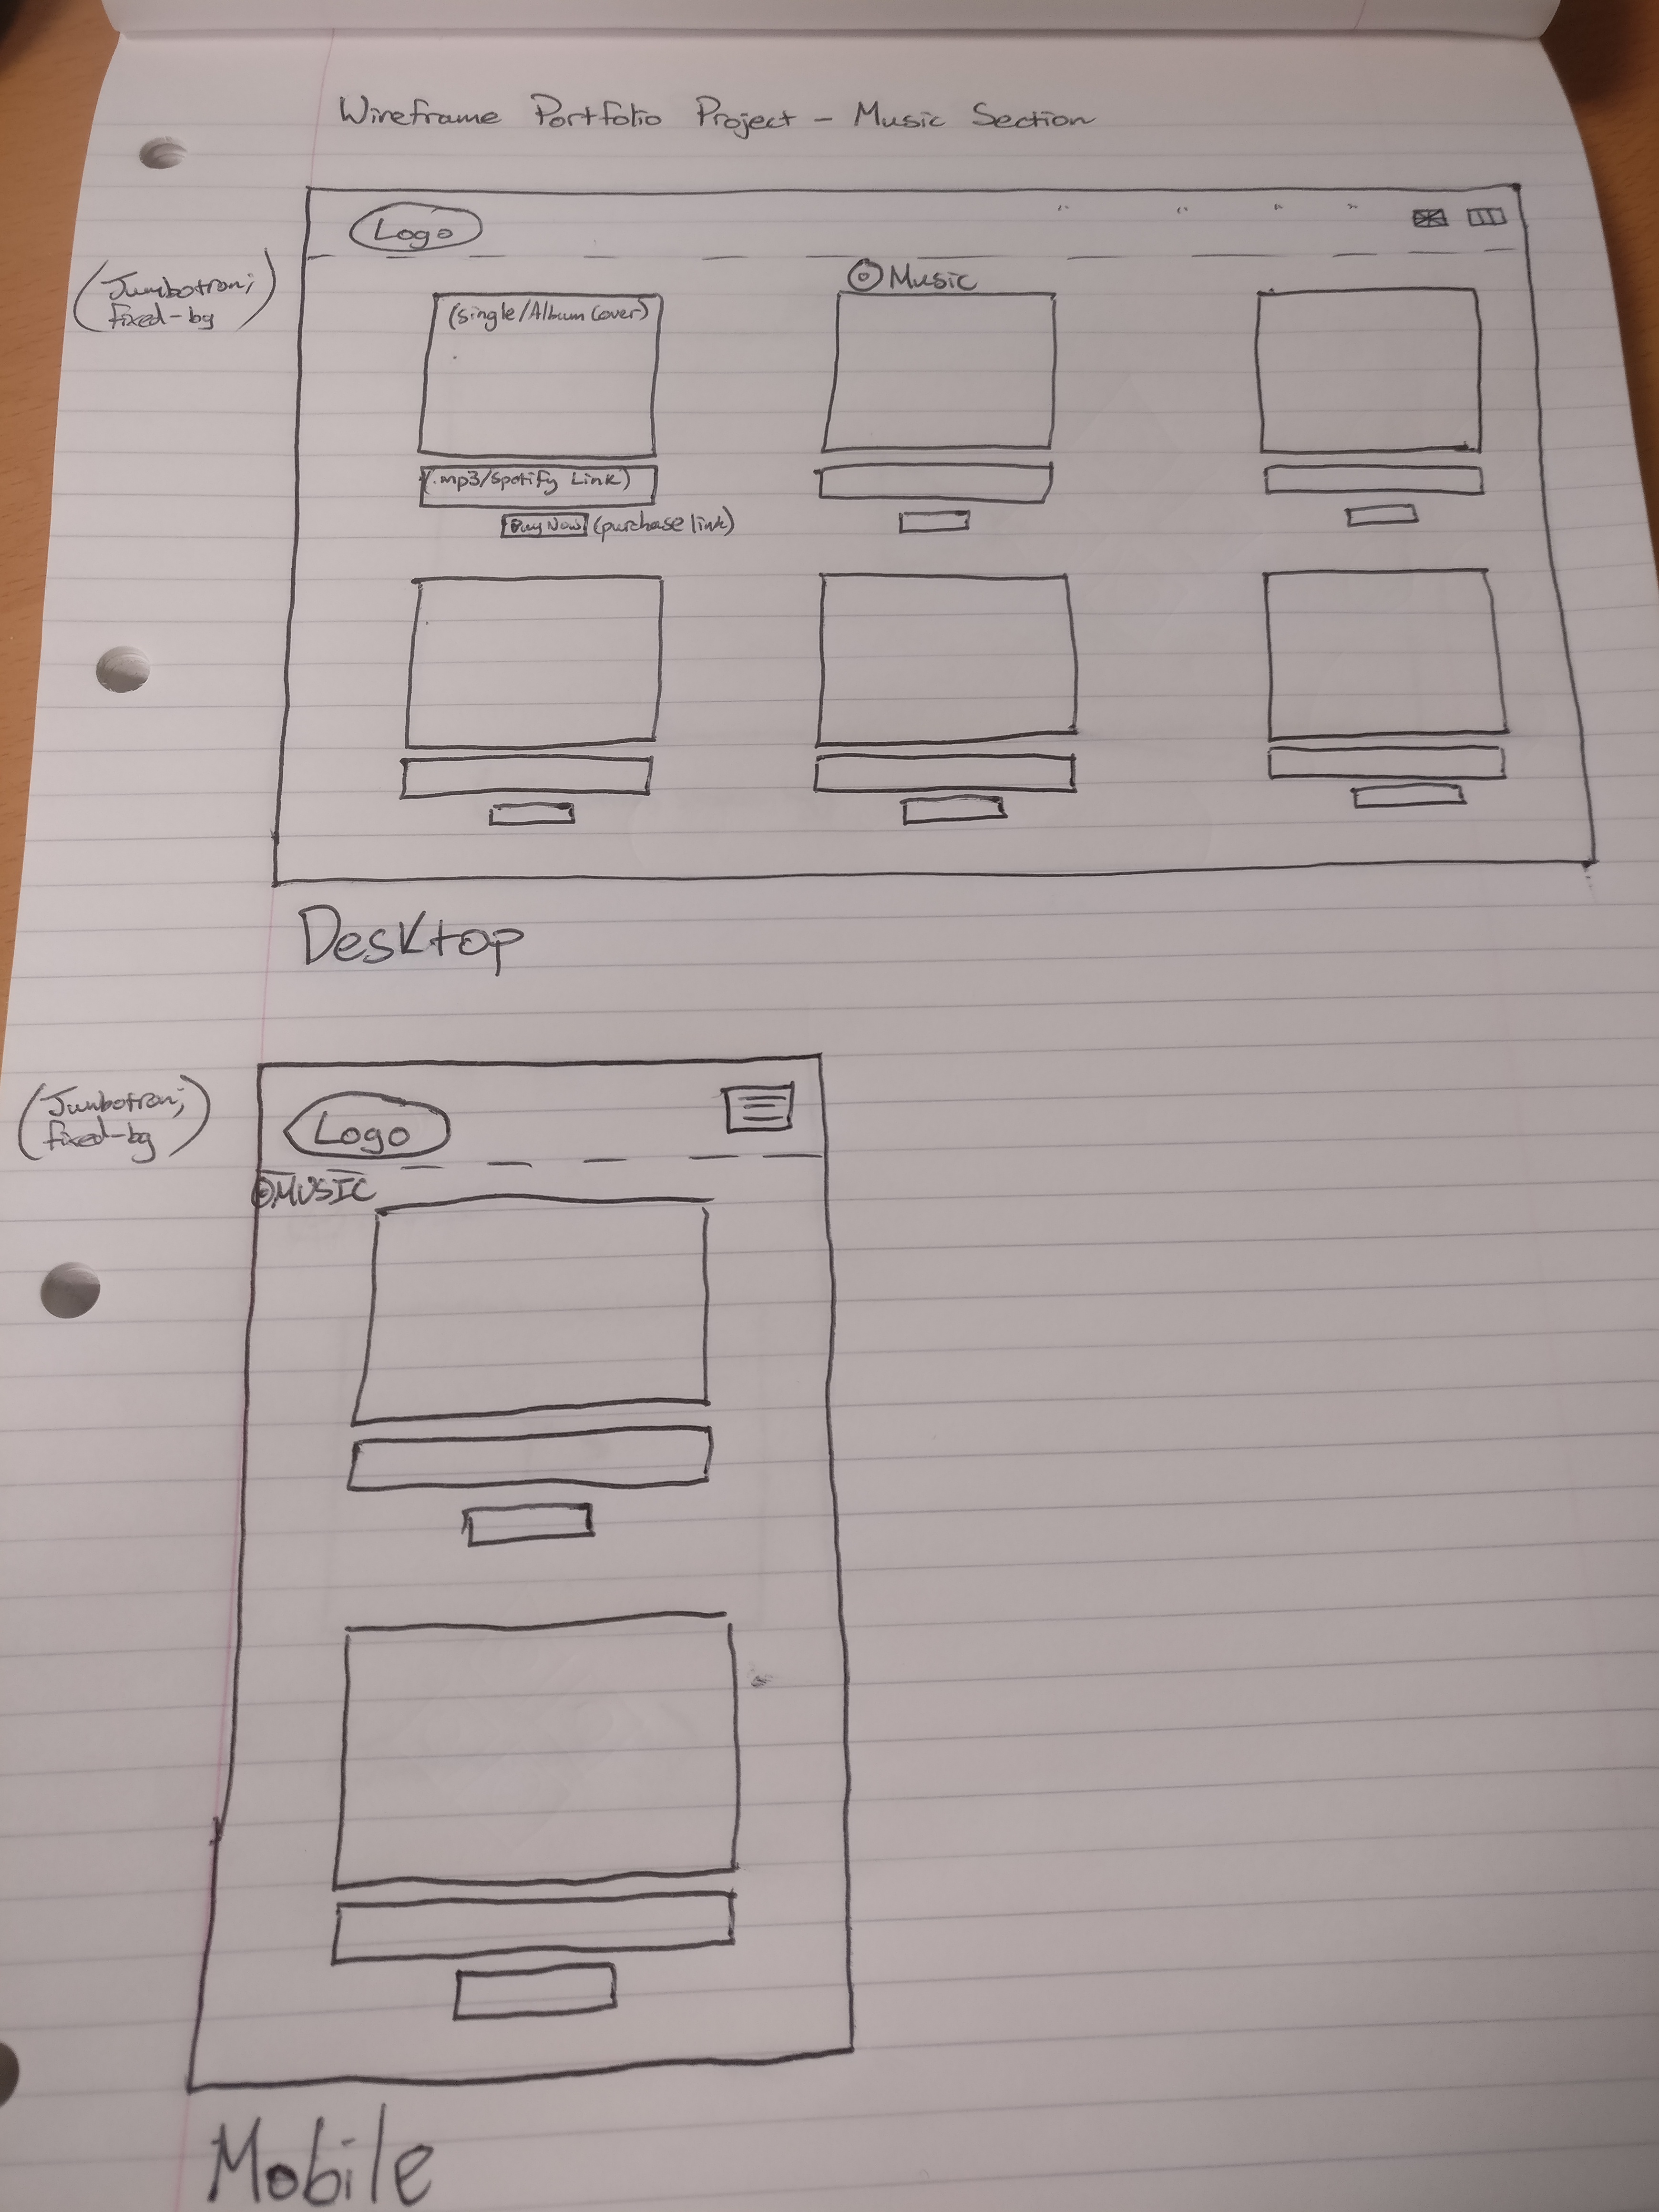 Wireframe Portfolio Project - Music Section
Logo
(Jumbotron;
fixed-bg)
Music
(Single/Album Cover)
(.mp3/Spotify Link)
Buy Now (purchase link)
Desktop
(Jumbotron;
fixed-bg)
Logo
MUSIC
Mobile